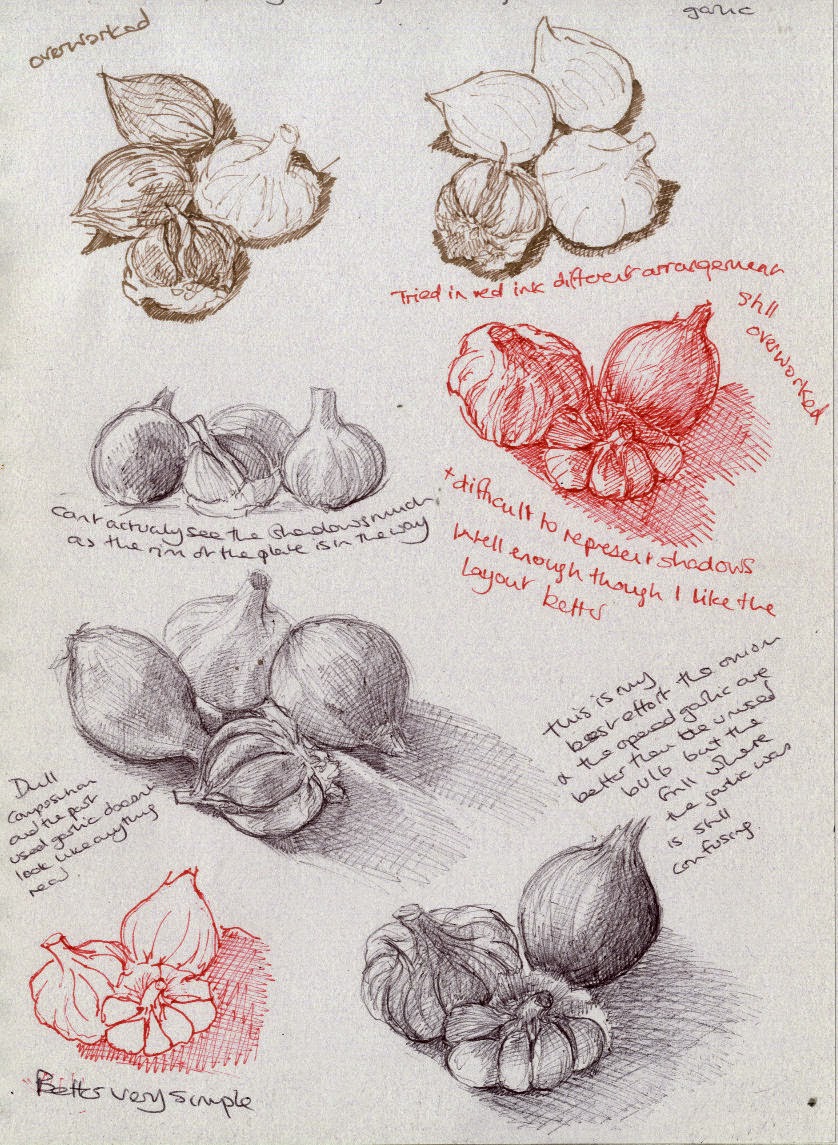 garlic
overworked
Tried in red ink different arrangement
still
overworked
can't actually see the shadows much
as the rim of the plate is in the way
+ difficult to represent shadows
well enough though I like the
layout better
this is my
best effort the onion
& the opened garlic are
better than the unused
bulb but the
frill where
the garlic was
is still
confusing.
Dull
composition
and the part
used garlic doesn't
look like anything
real
Better very simple